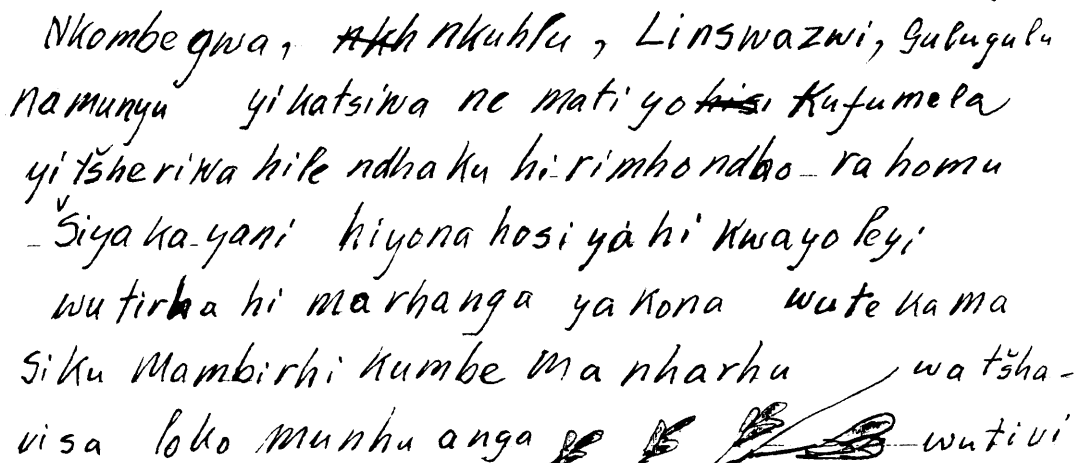 Nkombegwa, nkuhlu, Linswazwi, Gulugulu
namunyu yikatsiwa ne mati yo Kufumela
yi tšheriwa hile ndhaku hi-rimhondho-ra homu
- Šiya ka-yani hiyona hosi yà hi kwayo leyi
wu tirha hi marhanga ya kona wuteka ma
siku Mambirhi kumbe Ma nharhu wa tšha-
visa loko munhu anga wutivi